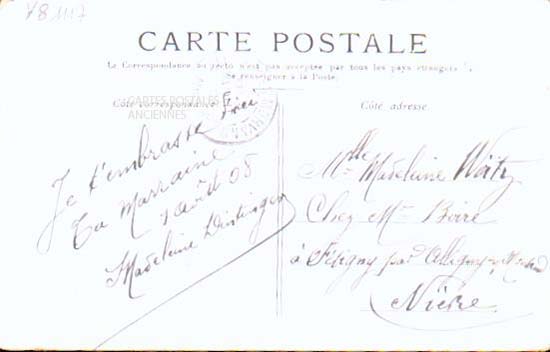 V8 1117
CARTE POSTALE
La Correspondance au recto n'est pas acceptée par tous les pays étrangers
Se renseigner à la Poste.
Côté correspondance
CARTES POSTALES
ANCIENNES
Côté adresse.
Je t'embrasse
Ta Marraine
1 août 08
Madeleine
Mlle Madeleine
Chez Mme Boire
à par Alligny en
Nièvre